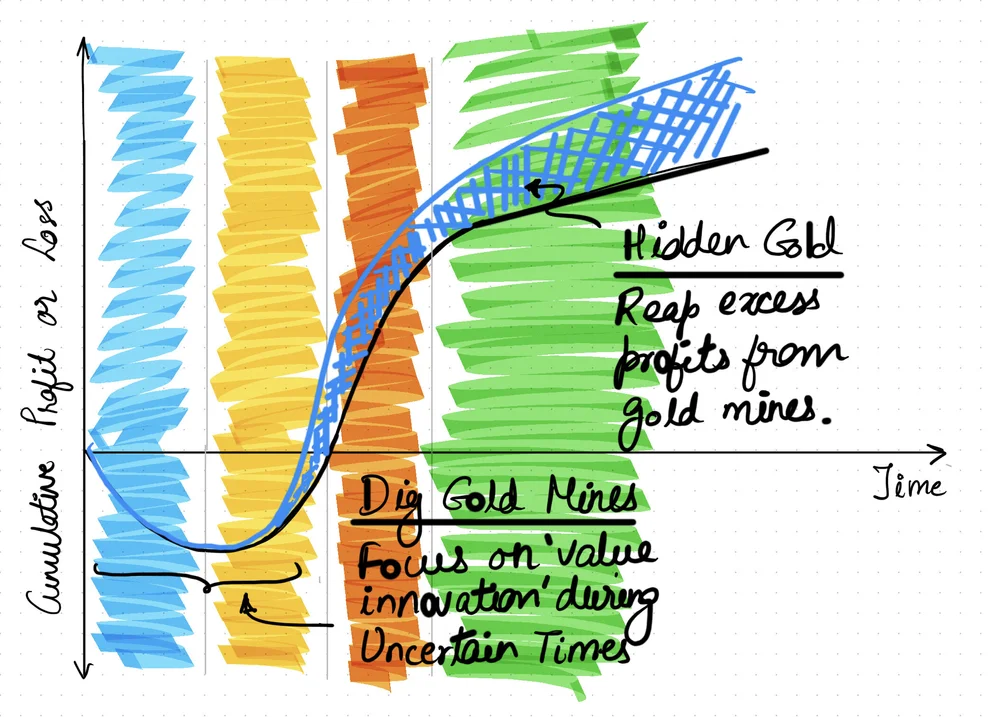 Cumulative Profit or Loss
Hidden Gold
Reap excess
profits from
gold mines.
Time
Dig Gold Mines
Focus on 'value
innovation' during
Uncertain Times